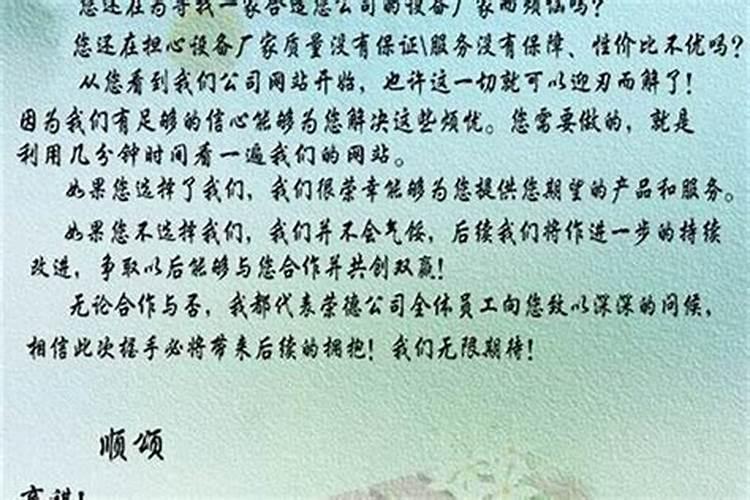 您还在为寻找一家合适您公司的设备厂家而烦恼吗?
您还在担心设备厂家质量没有保证\服务没有保障、性价比不优吗?
从您看到我们公司网站开始，也许这一切就可以迎刃而解了!
因为我们有足够的信心能够为您解决这些烦忧。您需要做的，就是
利用几分钟时间看一遍我们的网站。
如果您选择了我们，我们很荣幸能够为您提供您期望的产品和服务。
如果您不选择我们，我们并不会气馁，后续我们将作进一步的持续
改进，争取以后能够与您合作并共创双赢!
无论合作与否，我都代表荣德公司全体员工向您致以深深的问候，
相信此次握手必将带来后续的拥抱! 我们无限期待!
顺颂
商祺!